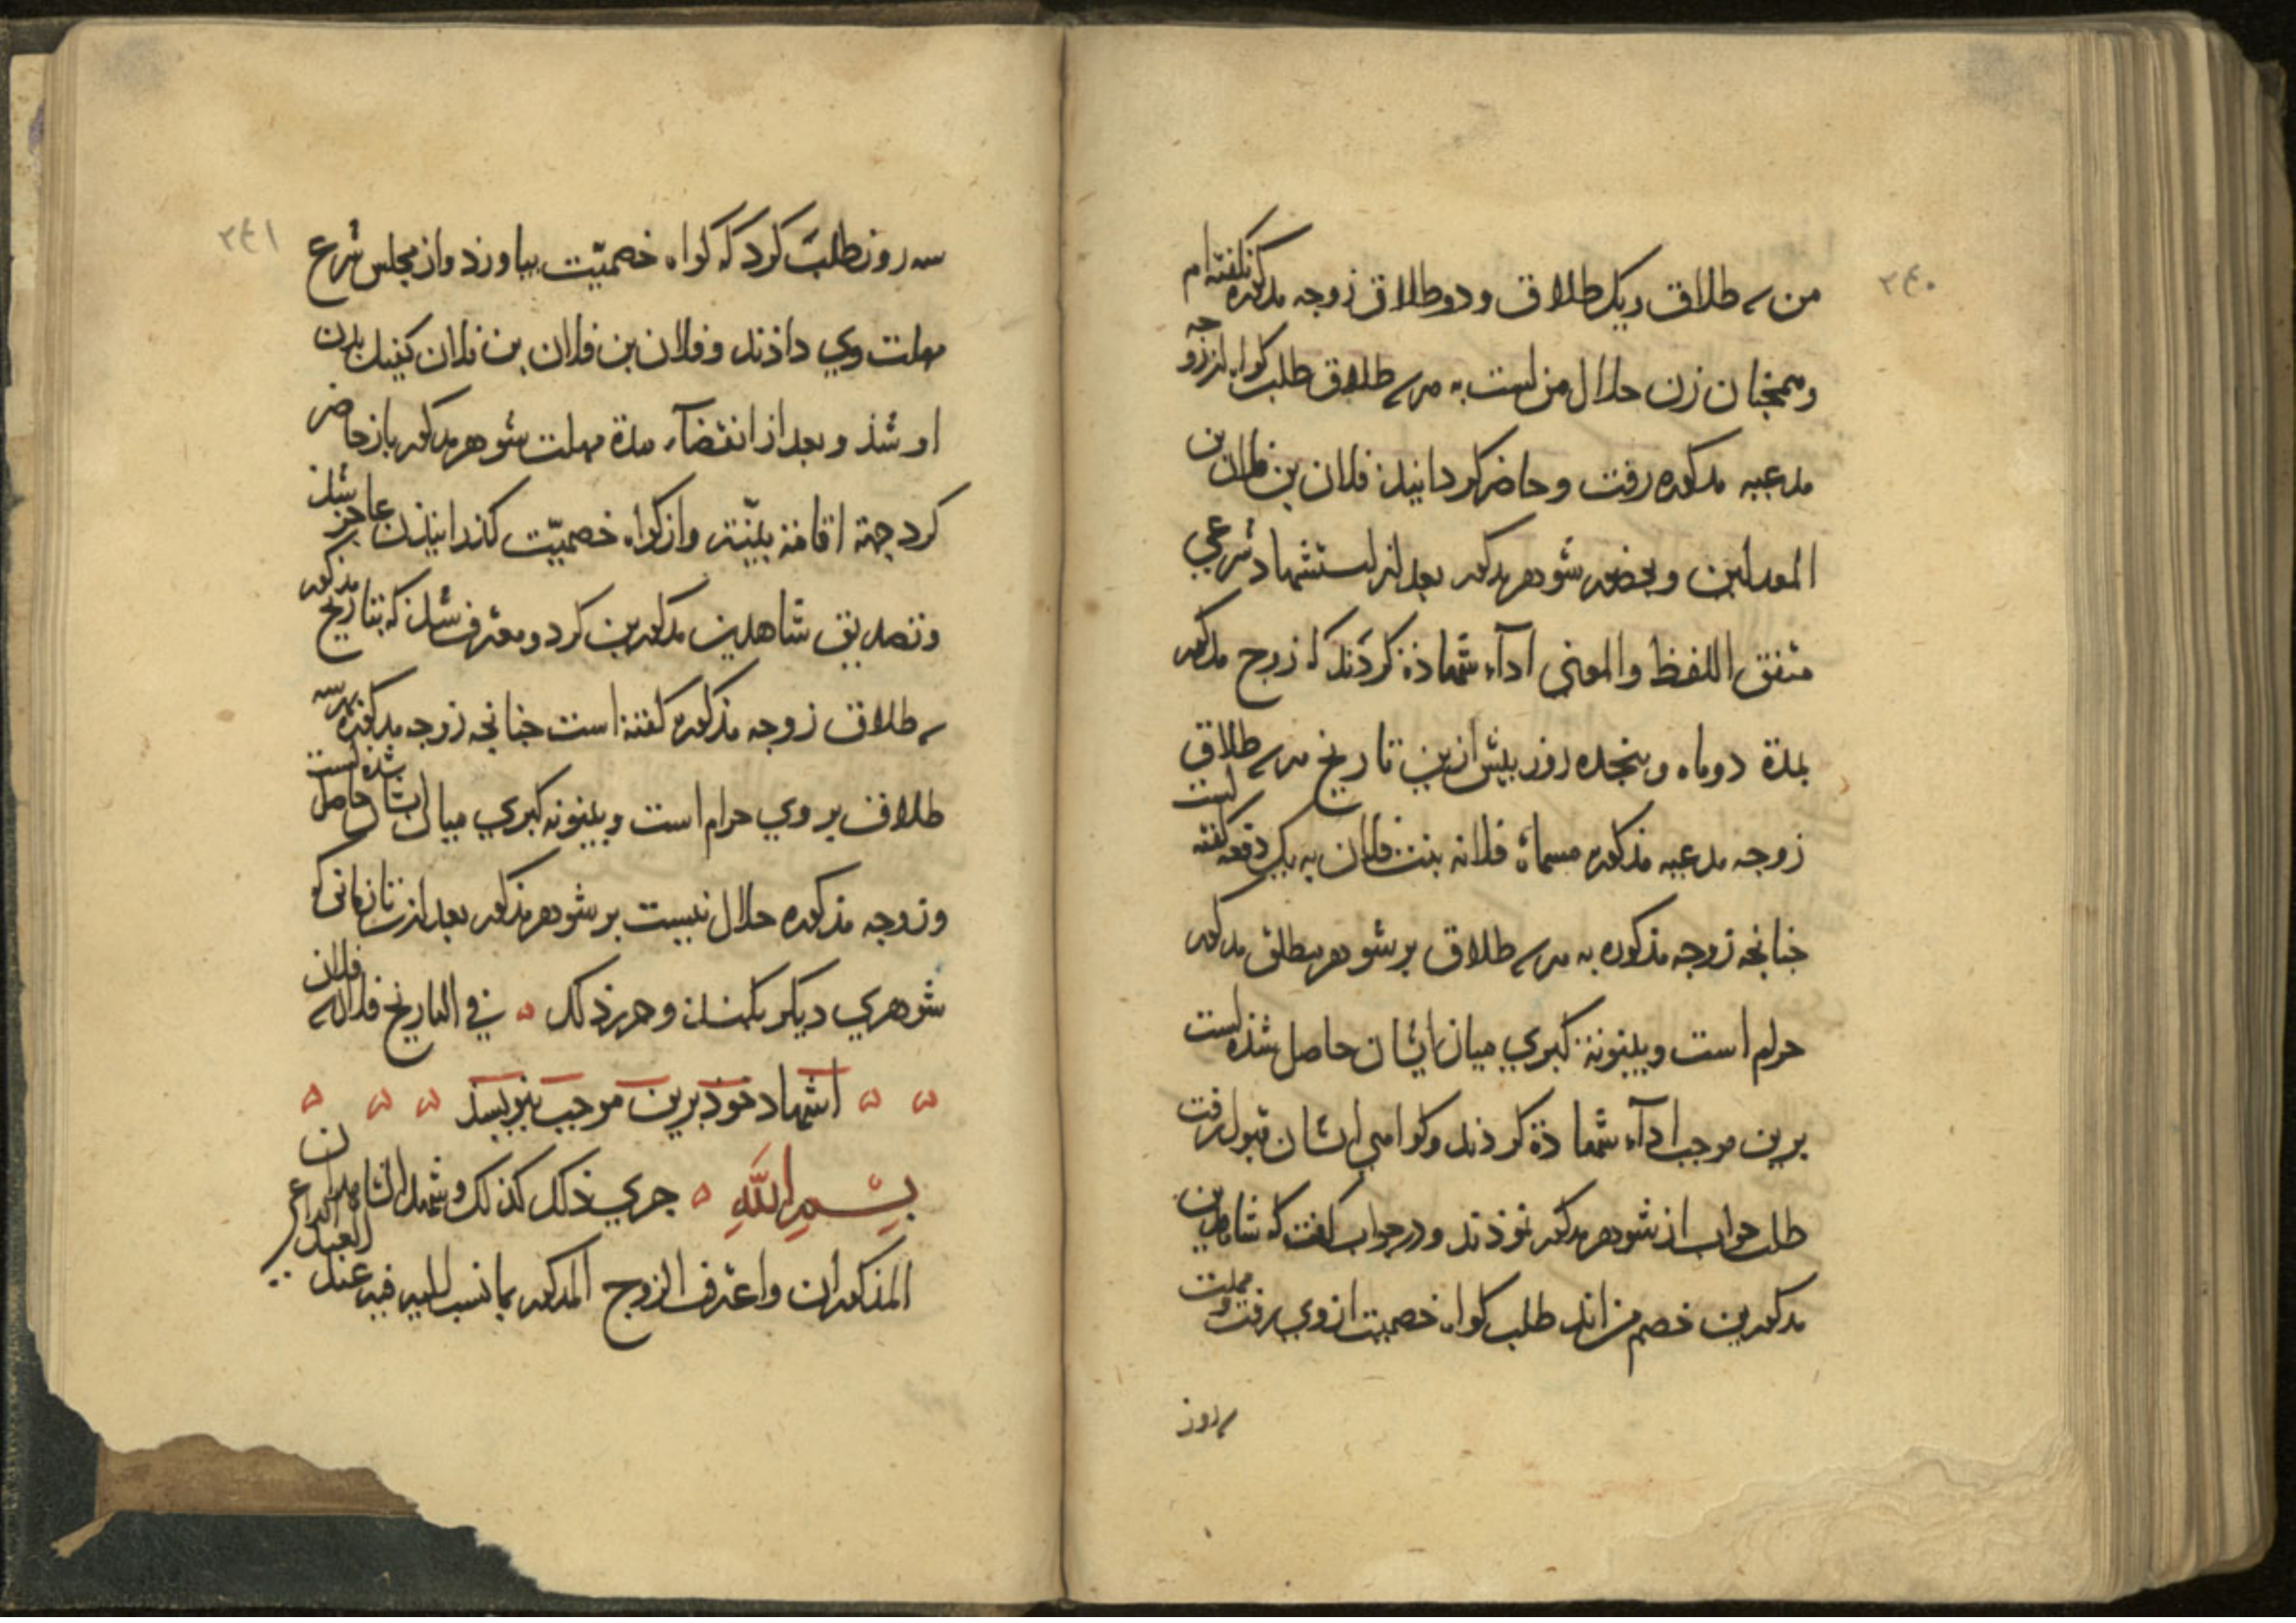 ٢٤٠
من سه طلاق ویک طلاق ودو طلاق زوجه مذکوره نکفته ام
وهمجنان زن حلال من است به هر سه طلاق طلب کواه از زوجه
مدعیه مذکوره رفت وحاضر کردانیذ فلان بن فلان بن
المعدلین وبحضور شوهر مذکور بعد از استشهاد شرعی
متفق اللفظ والمعنی اداء شهاذة کردند که زوج مذکور
بمدة دوماه وپنجده روز بیش ازین تاریخ هر سه طلاق
زوجه مدعیه مذکوره مسماة فلانه بنت فلان به یک دفعه کفته است
جنانجه زوجه مذکوره به هر سه طلاق بر شوهر مطلق مذکور
حرام است وبینونة کبری میان ایشان حاصل شذه است
برین موجب اداء شهاذة کردند وکواهی ایشان قبول رفت
طلب جواب از شوهر مذکور نموذند ودر جواب کفت که شاهدین
مذکورین خصم من اند طلب کواه خصمیت از وی رفت ومهلت
سه روز
٢٤١
سه روز طلب کرد که کواه خصمیّت بیاورد واز مجلس شرع
مهلت وی داذند وفلان بن فلان بن فلان کفیل بدن
او شذ وبعد از انقضآء مدة مهلت شوهر مذکور باز حاضر
کرد جهة اقامة بیّنة واز کواه خصمیّت کذرانیذن عاجز شذ
وتصدیق شاهدین مذکورین کرد ومعترف شذ که بتاریخ مذکور
سه طلاق زوجه مذکوره کفته است جنانجه زوجه مذکوره بهر سه
طلاق بر وی حرام است وبینونه کبری میان ایشان حاصل شده است
وزوجه مذکوره حلال نیست بر شوهر مذکور بعد ازین تا زمانی که
شوهری دیکر بکند وحرر ذلک في التاریخ فلان الی فلان
اشهاد خوذ برین موجب بنویسذ
بسم الله جری ذلک کذلک وشهد الشاهدان
المذکوران واعترف الزوج المذکور بما نسب الیه فیه عند العبد